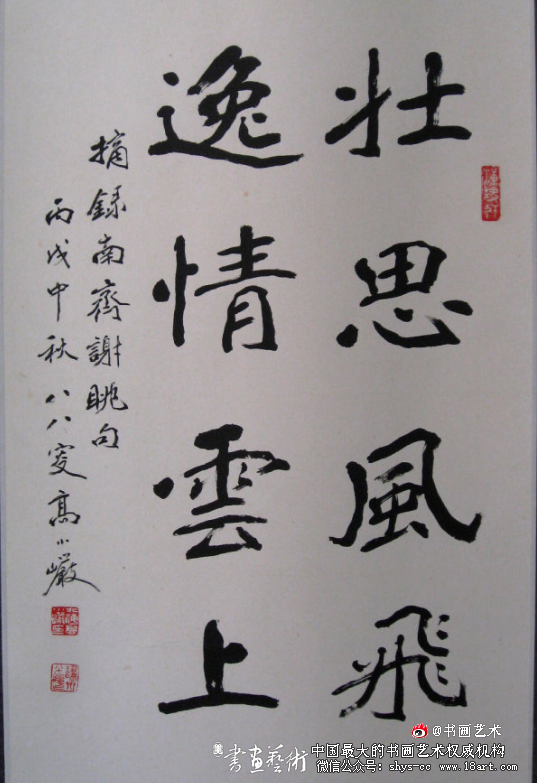 壯思風飛
逸情雲上
摘錄南齊謝眺句
丙戌中秋八八叟高小巖
@书画艺术
書畫藝術
中国最大的书画艺术权威机构
微信公众号：shys-cc www.18art.com